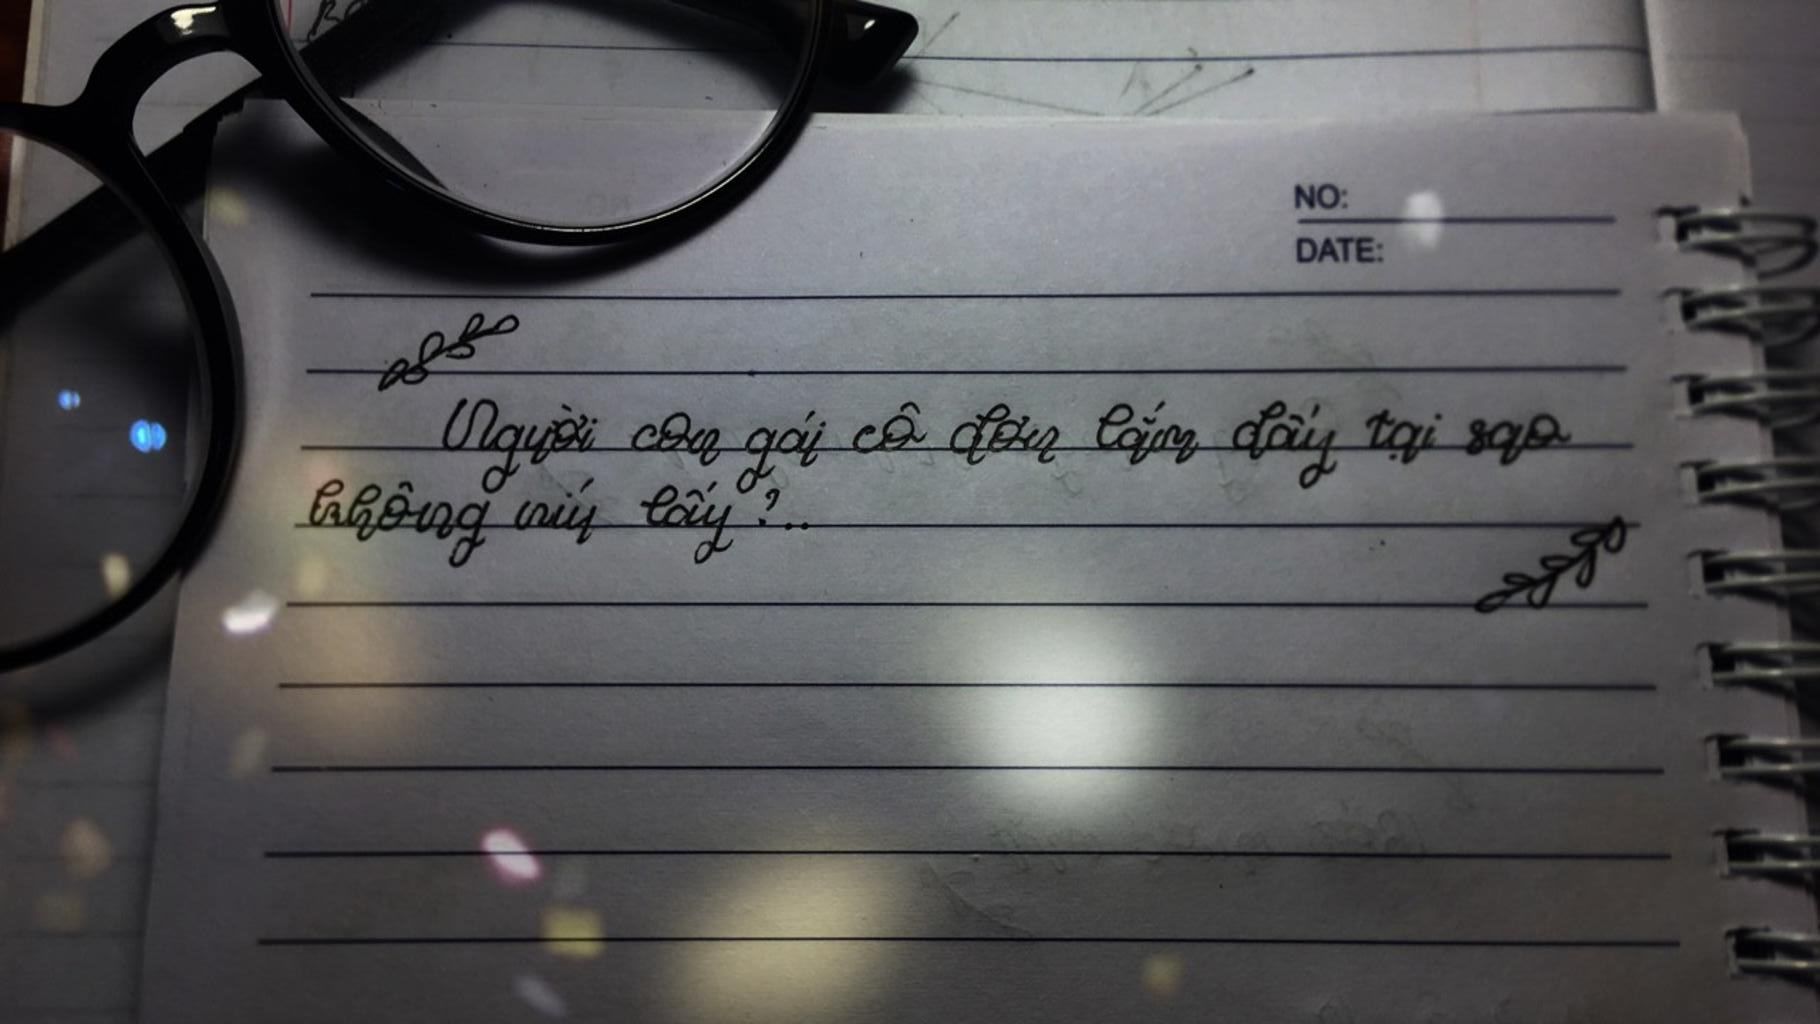 NO:
DATE:
Người con gái cô đơn lắm đấy tại sao
không níu lấy?..